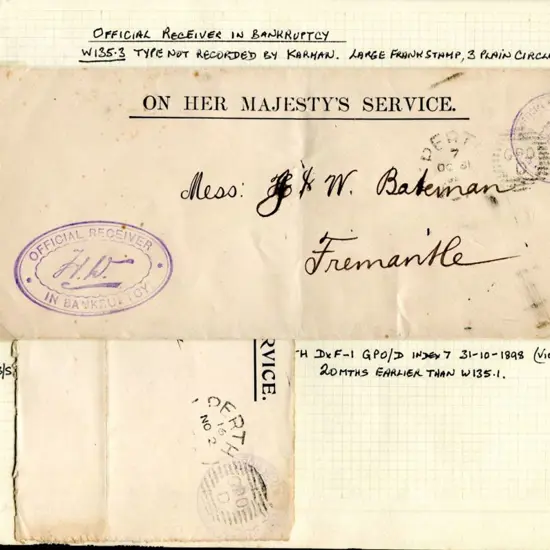 OFFICIAL RECEIVER IN BANKRUPTCY
W135.3 TYPE NOT RECORDED BY KARMAN. LARGE FRANK STAMP, 3 PLAIN CIRCL
ON HER MAJESTY'S SERVICE.
PERTH
7
OC 31
GPO
Mess: J & W. Bateman
Fremantle
OFFICIAL RECEIVER
H.D.
IN BANKRUPTCY
RVICE.
H DxF-1 GPO/D INDEX 7 31-10-1898 (VIC
20MTHS EARLIER THAN W135.1.
PERTH
16
NO 2
GPO
D